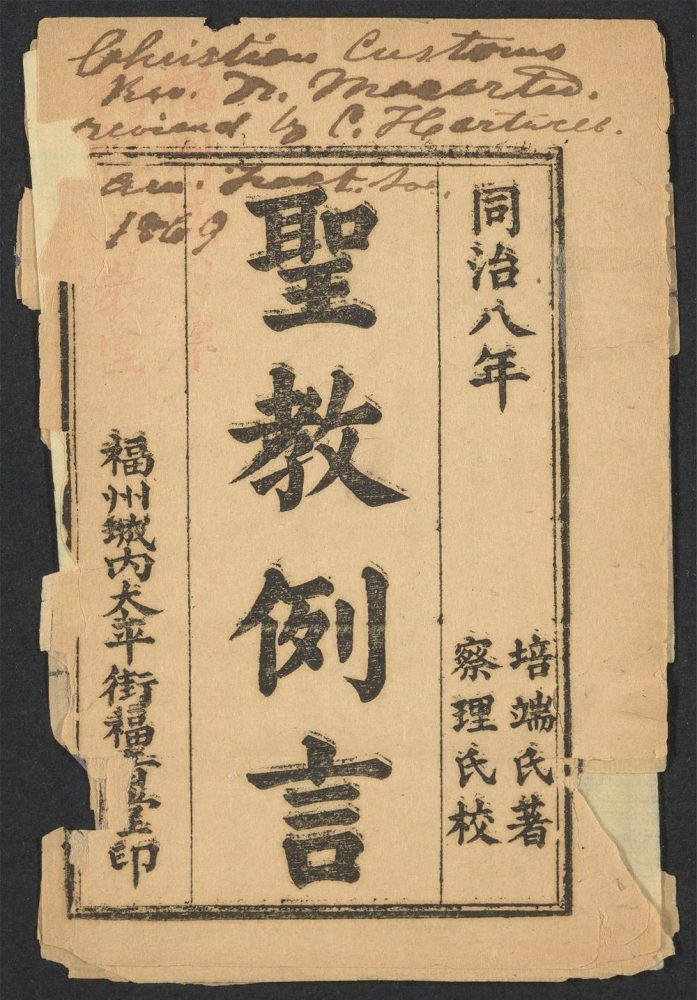 Christian Customs
Rev. Dr.
revised by C. Hartwell.
Am. Tract. Soc.
1869
同治八年
培端氏著
察理氏校
聖教例言
福州城内太平街福音堂印